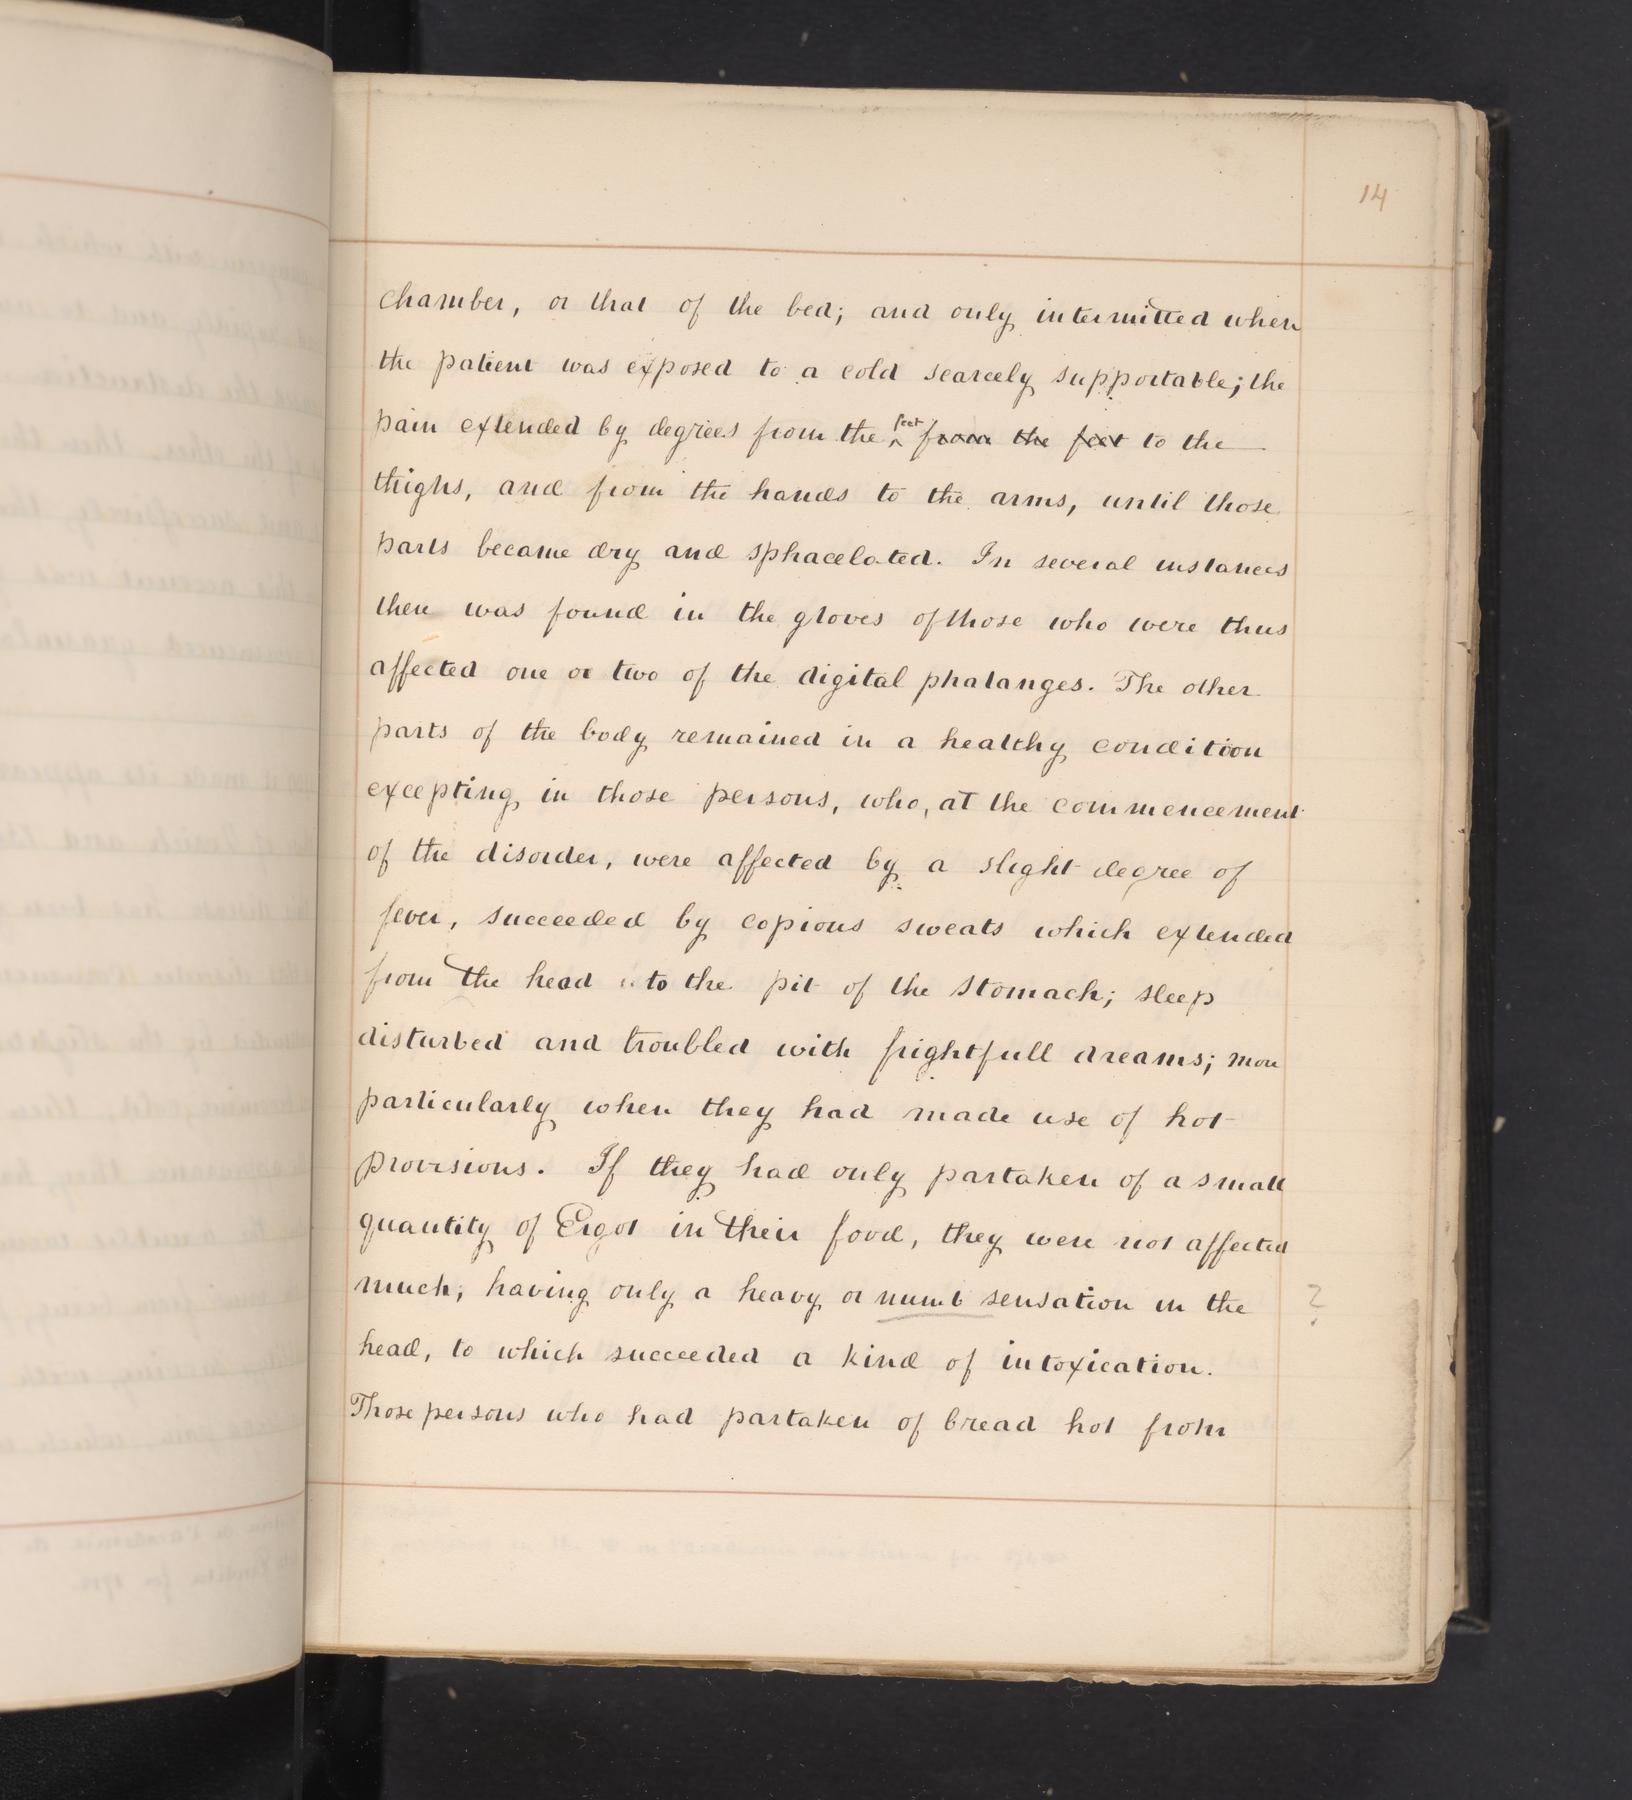 14
chamber, or that of the bed; and only intermitted when
the patient was exposed to a cold scarcely supportable; the
pain extended by degrees from the feet from the feet to the
thighs, and from the hands to the arms, until those
parts became dry and sphacelated. In several instances
there was found in the gloves of those who were thus
affected one or two of the digital phalanges. The other
parts of the body remained in a healthy condition
excepting in those persons, who, at the commencement
of the disorder, were affected by a slight degree of
fever, succeeded by copious sweats which extended
from the head to the pit of the stomach; sleep
disturbed and troubled with frightfull dreams; more
particularly when they had made use of hot
provisions. If they had only partaken of a small
quantity of Ergot in their food, they were not affected
much; having only a heavy or numb sensation in the ?
head, to which succeeded a kind of intoxication.
Those persons who had partaken of bread hot from